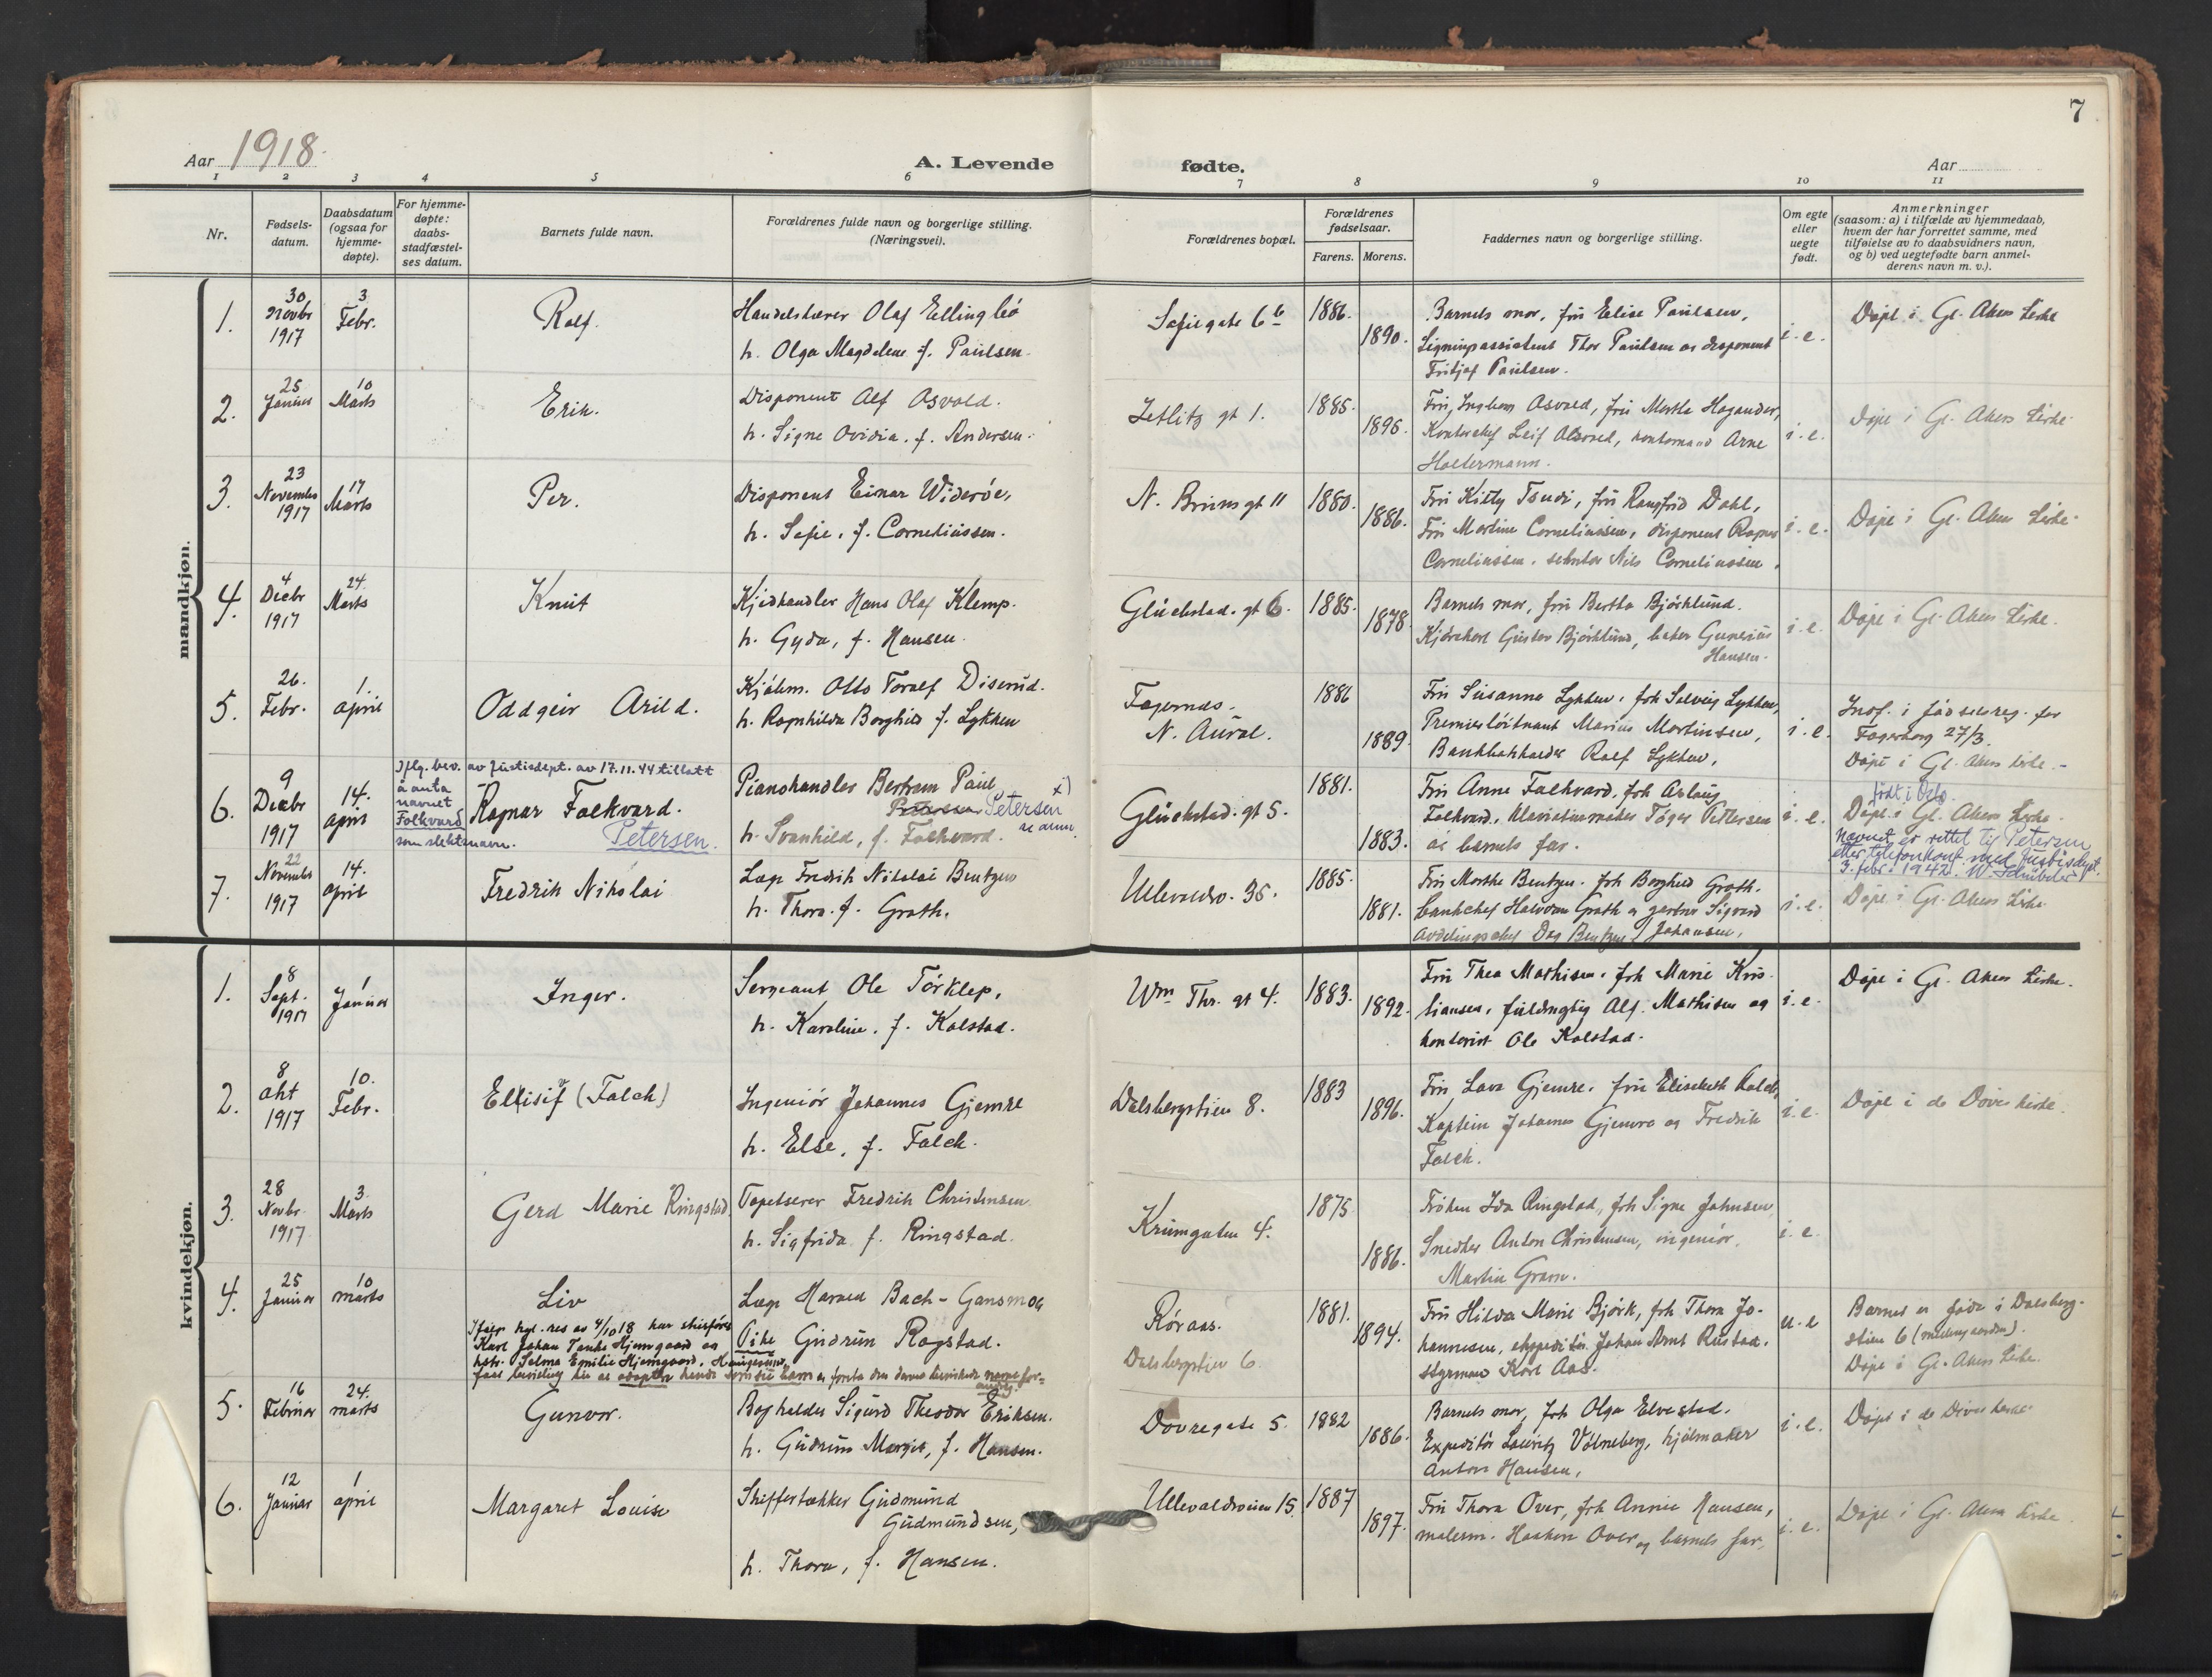 7
Aar 1918.
A. Levende fødte.
Aar
1 2 3 4 5 6 7 8 9 10 11
Nr.
Fødsels-
datum.
Daabsdatum
(ogsaa for
hjemme-
døpte).
For hjemme-
døpte:
daabs-
stadfæstel-
ses datum.
Barnets fulde navn.
Forældrenes fulde navn og borgerlige stilling.
(Næringsvei).
Forældrenes bopæl.
Forældrenes
fødselsaar.
Farens. Morens.
Faddernes navn og borgerlige stilling.
Om egte
eller
uegte
født.
Anmerkninger
(saasom: a) i tilfælde av hjemmedaab,
hvem der har forrettet samme, med
tilføielse av to daabsvidners navn,
og b) ved uegtefødte barn anmel-
derens navn m. v.).
mandkjøn.
1.
30
Novbr
1917
3
Febr.
Rolf.
Olaf Ellingbö
h. Olga Magdalene f. Paulsen.
Sofiegate 6b
1886.
1890.
Barnets mor, fru Elise Paulsen,
Thor Paulsen og disponent
Fritjof Paulsen.
i. e.
Døpt i Gl. Akers kirke
2.
25
Januar
10
Marts
Erik.
Disponent Alf Osvold.
h. Signe Ovidia. f. Andersen.
Jetlitz gt 1.
1885.
1896.
i. e.
Døpt i Gl. Akers kirke.
3.
23
November
1917
17
Marts
Per.
Disponent Einar Wideröe,
h. Sofie, f. Corneliussen.
N. Bruns gt 11
1880.
1886.
Fru Kitty Tsudi, fru Ragnfrid Dahl,
Fru Martine Corneliussen, disponent Ragnar
Corneliussen. Nils Corneliussen.
i. e.
Døpt i Gl. Akers kirke.
4.
4
Decbr
1917
24.
Marts
Knut
Kjødhandler Hans Olaf Klemp.
h. Gyda, f. Hansen.
Glückstad. gt 6.
1885.
1878.
Barnets mor, fru Bertha Björklund.
Gustav Björklund, baker Gunerius
Hansen.
i. e.
Døpt i Gl. Akers kirke.
5.
26.
Febr.
1.
april
Oddgeir Arild.
Kjøbm. Otto Toralf Diserud.
h. Ragnhilda Borghild f. Lykken
Fagernæs.
N. Aurdal.
1886
1889.
Fru Susanna Lykken. frk Solveig Lykken,
Premierløitnant Marius Martinsen,
Rolf Lykken,
i. e.
Innf. i fødselsreg. for
Fagerborg 27/3.
Døpt i Gl. Akers kirke.
6.
9
Decbr
1917
14.
april
Iflg. bev. av Justisdept. av 17.11.44 tillatt
å anta
navnet
Folkvard
som slektsnavn.
Ragnar Folkvard.
Petersen.
Pianohandler Bertram Paul
Petersen x)
se anm.
h. Svanhild, f. Folkvard.
Glückstad. gt 5.
1881.
1883.
Fru Anne Folkvard, frk Aslaug
Folkvard, Klaverstemmer Petersen
og barnets far.
i. e.
født i Oslo.
Døpt i Gl. Akers kirke.
Navnet er rettet til Petersen
etter telefonkonf. med Justisdept.
3. febr. 1942. W. Schübeler
7.
22
November
1917
14.
april
Fredrik Nikolai
Læge Fredrik Nikolai Bentzen
h. Thora. f. Groth.
Ullevoldsv. 35.
1885.
1881.
Fru Marthe Bentzen. frk Borghild Groth.
Bankchef Halvdan Groth og gartner Sigvard
Avdelingschef Dag Bentzen / Johansen,
i. e.
Døpt i Gl. Akers kirke.
kvindekjøn.
1.
8
Sept.
1917
1
Januar
Inger.
Sergeant Ole Törklep,
h. Karoline. f. Kolstad.
Wm Thr. gt 4.
1883.
1892.
Fru Thea Mathisen. frk Marie Kris-
tiansen, fuldmægtig Alf. Mathisen og
kontorist Ole Kolstad.
i. e.
Døpt i Gl. Akers kirke.
2.
8
Okt
1917
10.
Febr.
Ellisif (Falch)
Ingeniör Johannes Gjemre
h. Else, f. Falch.
Dalsbergstien 8.
1883
1896.
Fru Lava Gjemre. fru Elisabeth Falch,
Kaptein Johannes Gjemre og Fredrik
Falch.
i. e.
Døpt i de Døves kirke.
3.
28
Novbr.
1917
3.
Marts
Gerd Marie Ringstad
Tapetserer Fredrik Christensen
h. Sigfrida f. Ringstad.
Krumgaten 4.
1875
1886.
Frøken Ida Ringstad, frk Signe Johnsen,
Snedker Anton Christensen, ingeniör,
Martin Gram.
i. e.
4.
25
Januar
10
marts
Liv
Ifølge kgl. res av 4/10 18 har skibsfører
Karl Johan Tanke Hjemgaard og
hstr. Selma Emilie Hjemgaard, Haugesund,
faat bevilling til at adoptere hende som sit barn
Læge Harald Bach-Gansmoe
Pike Gudrun Rogstad.
Röraas.
Dalsbergstien 6.
1881.
1894.
Fru Hilda Marie Björk, frk Thora Jo-
hannesen, ekspeditör Johan Arnt Rustad.
styrmand Karl Aas.
u. e
Barnet er født i Dalsberg-
stien 6
Døpt i Gl. Akers kirke.
5.
16
Februar
24.
marts
Gunvor.
Bogholder Sigurd Theodor Eriksen.
h. Gudrun Margit, f. Hansen.
Dovregate 5.
1882
1886.
Barnets mor, frk Olga Elvestad.
Expeditör Lauritz Volneberg, hjulmaker
Anton Hansen,
i. e.
Døpt i de Døves kirke.
6.
12
Januar
1
april
Margaret Louise
Skiffertækker Gudmund
Gudmundsen,
h. Thora, f. Hansen.
Ullevoldsveien 15.
1887
1897.
Fru Thora Over, frk Annie Hansen,
malerm. Haakon Over og barnets far,
i. e.
Døpt i Gl. Akers kirke.